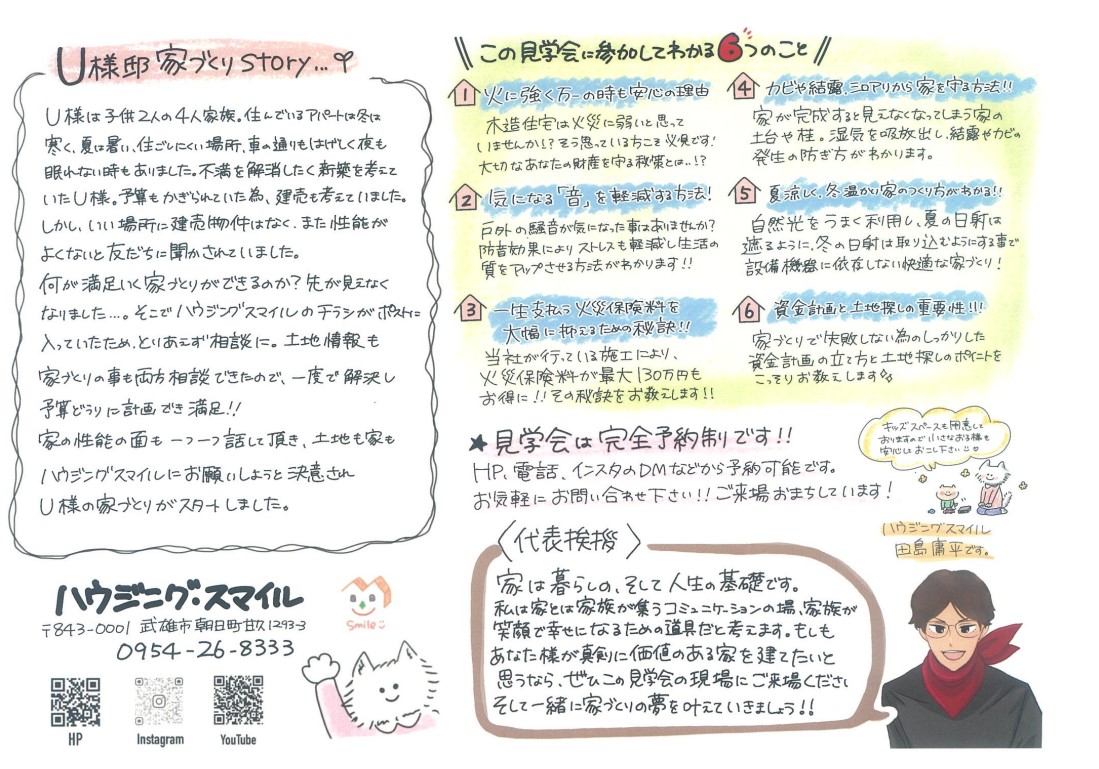 U様邸 家づくりstory...
U様は子供2人の4人家族。住んでいるアパートは冬は
寒く、夏は暑い、住ごしにくい場所、車の通りもはげしく夜も
眠れない時もありました。不満を解消したく新築を考えて
いたU様。予算もかぎられていた為、建売も考えていました。
しかし、いい場所に建売物件はなく、また性能が
よくないと友だちに聞かされていました。
何が満足いく家づくりができるのか?先が見えなく
なりました…。そこでハウジングスマイルのチラシがポストに
入っていたため、とりあえず相談に。土地情報も
家づくりの事も両方相談できたので、一度で解決し
予算どうりに計画でき満足!!
家の性能の面も一つ一つ話して頂き、土地も家も
ハウジングスマイルにお願いしようと決意され
U様の家づくりがスタートしました。
ハウジング・スマイル
smile
〒843-0001 武雄市朝日町甘久1293-3
0954-26-8333
HP
Instagram
YouTube
この見学会に参加してわかる6つのこと
1 火に強く万一の時も安心の理由
木造住宅は火災に弱いと思って
いませんか!?そう思っている方こそ必見です!
大切なあなたの財産を守る秘策とは..!?
2 気になる「音」を軽減する方法!
戸外の騒音が気になった事はありませんか?
防音効果によりストレスも軽減し生活の
質をアップさせる方法がわかります!!
3 一生支払う火災保険料を
大幅に抑えるための秘訣!!
当社が行っている施工により、
火災保険料が最大130万円も
お得に!!その秘訣をお教えします!!
4 カビや結露、シロアリから家を守る方法!!
家が完成すると見えなくなってしまう家の
土台や柱。湿気を吸放出し、結露やカビの
発生の防ぎ方がわかります。
5 夏涼しく、冬温かい家のつくり方がわかる!!
自然光をうまく利用し、夏の日射は
遮るように、冬の日射は取り込むようにする事で
設備機器に依存しない快適な家づくり!
6 資金計画と土地探しの重要性!!!
家づくりで失敗しない為のしっかりした
資金計画の立て方と土地探しのポイントを
こっそりお教えします
★見学会は完全予約制です!!
HP、電話、インスタのDMなどから予約可能です。
お気軽にお問い合わせ下さい!!ご来場おまちしています!
キッズスペースも用意して
おりますので小さなお子様も
安心してお こし下さい
ハウジングスマイル
田島庸平です。
〈代表挨拶〉
家は暮らしの、そして人生の基礎です。
私は家とは家族が集うコミュニケーションの場、家族が
笑顔で幸せになるための道具だと考えます。もしも
あなた様が真剣に価値のある家を建てたいと
思うなら、ぜひこの見学会の現場にご来場ください
そして一緒に家づくりの夢を叶えていきましょう!!